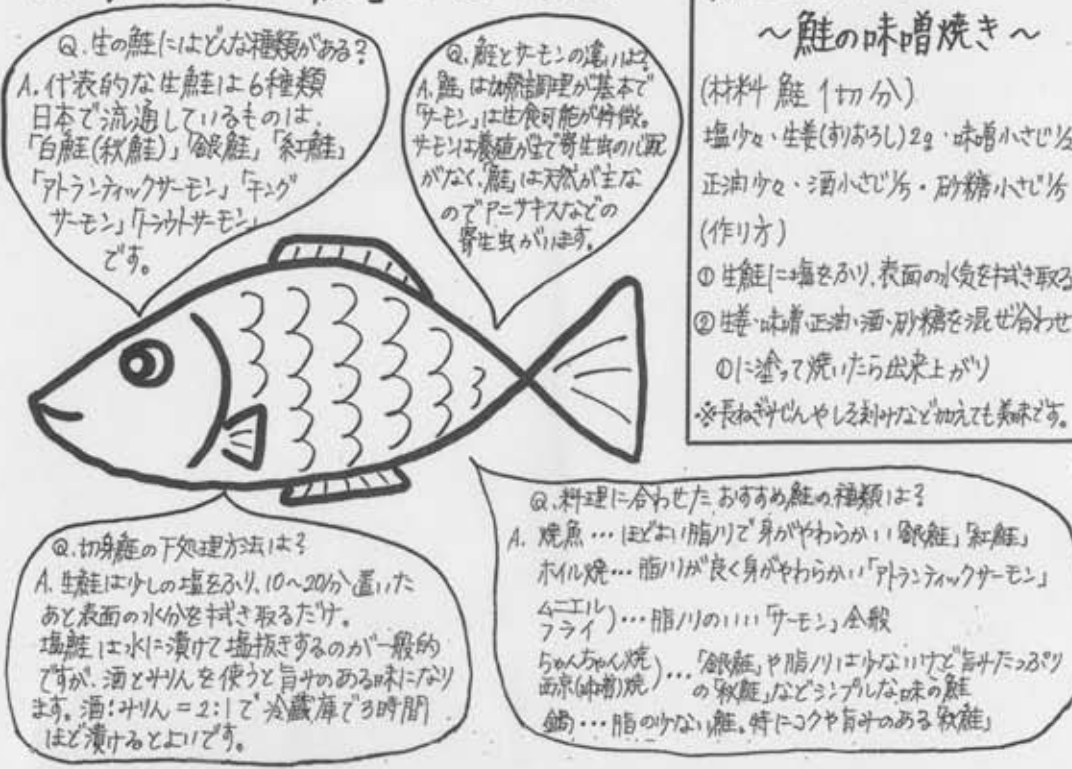 Q.生の鮭にはどんな種類がある?
A.代表的な生鮭は6種類
日本で流通しているものは、
「白鮭(秋鮭)」「銀鮭」「紅鮭」
「アトランティックサーモン」「キング
サーモン」「トラウトサーモン」
です。
Q.鮭とサーモンの違いは?
A.「鮭」は加熱調理が基本で
「サーモン」は生食可能が特徴。
サーモンは養殖が主で寄生虫の心配
がなく、「鮭」は天然が主な
のでアニサキスなどの
寄生虫がいます。
～鮭の味噌焼き～
(材料 鮭1切分)
塩少々・生姜(すりおろし)2g・味噌小さじ1/2
正油少々・酒小さじ1/5・砂糖小さじ1/5
(作り方)
①生鮭に塩をふり、表面の水気を拭き取る
②生姜・味噌・正油・酒・砂糖を混ぜ合わせ
①に塗って焼いたら出来上がり
※長ねぎみじんやしそ刻みなど加えても美味です。
Q.切身鮭の下処理方法は?
A.生鮭は少しの塩をふり、10～20分置いた
あと表面の水分を拭き取るだけ。
塩鮭は水に漬けて塩抜きするのが一般的
ですが、酒とみりんを使うと旨みのある味になり
ます。酒:みりん=2:1で冷蔵庫で3時間
ほど漬けるとよいです。
Q.料理に合わせたおすすめ鮭の種類は?
A.焼魚…ほどよい脂ノリで身がやわらかい「銀鮭」「紅鮭」
ホイル焼…脂ノリが良く身がやわらかい「アトランティックサーモン」
ムニエル
フライ)…脂ノリのいい「サーモン」全般
ちゃんちゃん焼
西京(味噌)焼)…「銀鮭」や脂ノリは少ないけど旨みたっぷり
の「秋鮭」などシンプルな味の鮭
鍋…脂の少ない鮭。特にコクや旨みのある「秋鮭」